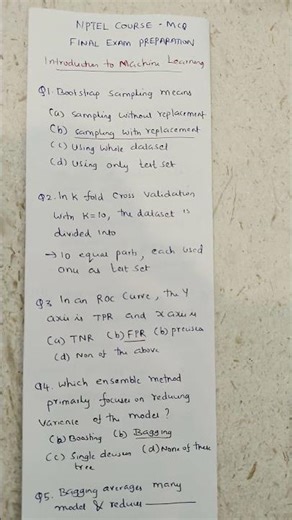 NPTEL COURSE - MCQ
FINAL EXAM PREPARATION
Introduction to Machine Learning
Q1. Bootstrap Sampling means
(a) sampling without replacement
(b) sampling with replacement
(c) Using whole dataset
(d) Using only test set
Q2. In K fold cross validation
with K=10, the dataset is
divided into
→ 10 equal parts, each used
once as test set
Q3 In an ROC Curve, the Y
axis is TPR and x axis is
(a) TNR (b) FPR (b) precision
(d) Non of the above
Q4. Which ensemble method
primarily focuses on reducing
Variance of the model?
(a) Boosting (b) Bagging
(c) Single decision (d) None of these
tree
Q5. Bagging averages many
model & reduces